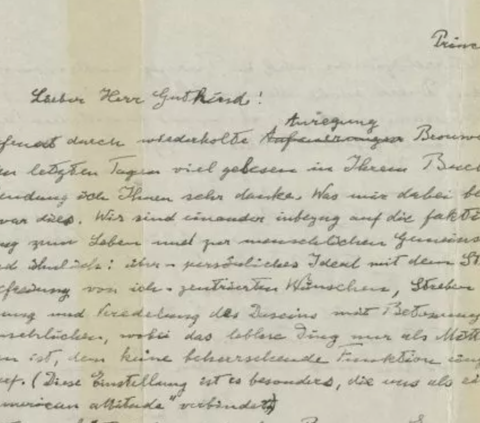 Princ
Lieber Herr Gutkind!
Anregung
fenat durch wiederholte Aufmunterungen Brouwe
n letzten Tagen viel gelesen in Ihrem Buch
endung ich Ihnen sehr danke. Was mir dabei be
war dies. Wir sind einander inbezug auf die fakti
ng zum Leben und zur menschlichen Gemeins
d ähnlich: über-persönliches Ideal mit dem St
freiung von ich-zentrierten Wünschen, Streben
ung und Veredelung des Daseins mit Betonung
nschlichen, wobei das leblose Ding nur als Mitt
n ist, dem keine beherrschende Funktion eing
ef. (Diese Einstellung ist es besonders, die uns als ei
merican attitude" verbindet)